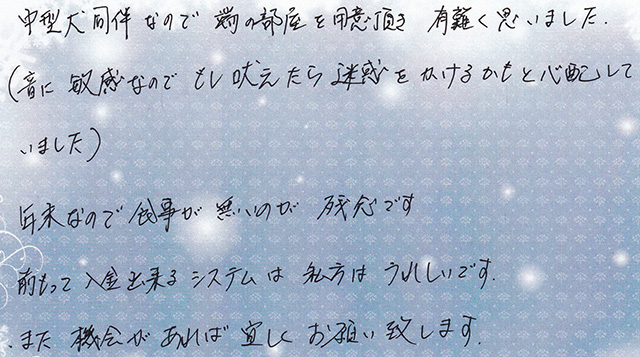 中型犬同伴なので 端の部屋を用意頂き 有難く思いました.
(音に 敏感なので もし吠えたら 迷惑をかけるかもと心配して
いました)
年末なので食事が 無いのが 残念です
前もって 入金出来るシステムは 私方は うれしいです.
また 機会があれば 宜しく お願い致します.